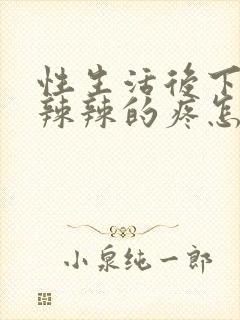 性生活后下
辣辣的疼怎
小泉纯一郎